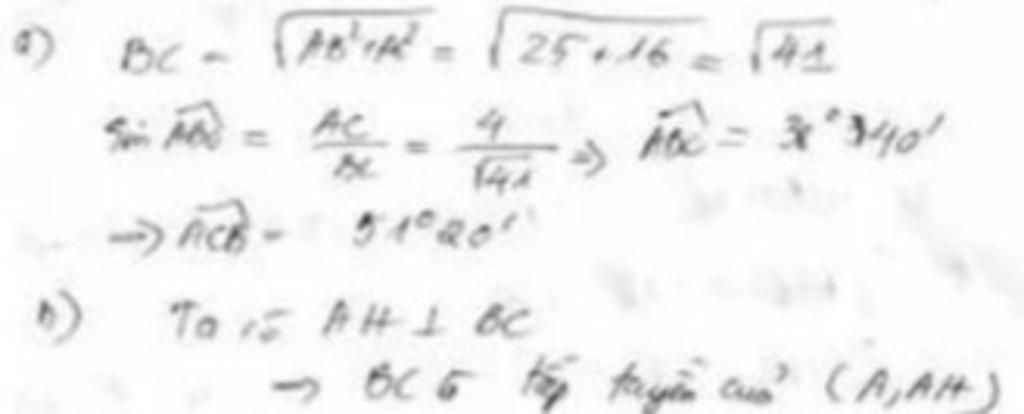 a) BC = √(AB² + AC²) = √(25 + 16) = √41
Sin ABC = AC/BC = 4/√41 => ABC = 38°40'
→ ACB = 51°20'
b) Ta có AH ⊥ BC
→ BC là tiếp tuyến của (A, AH)